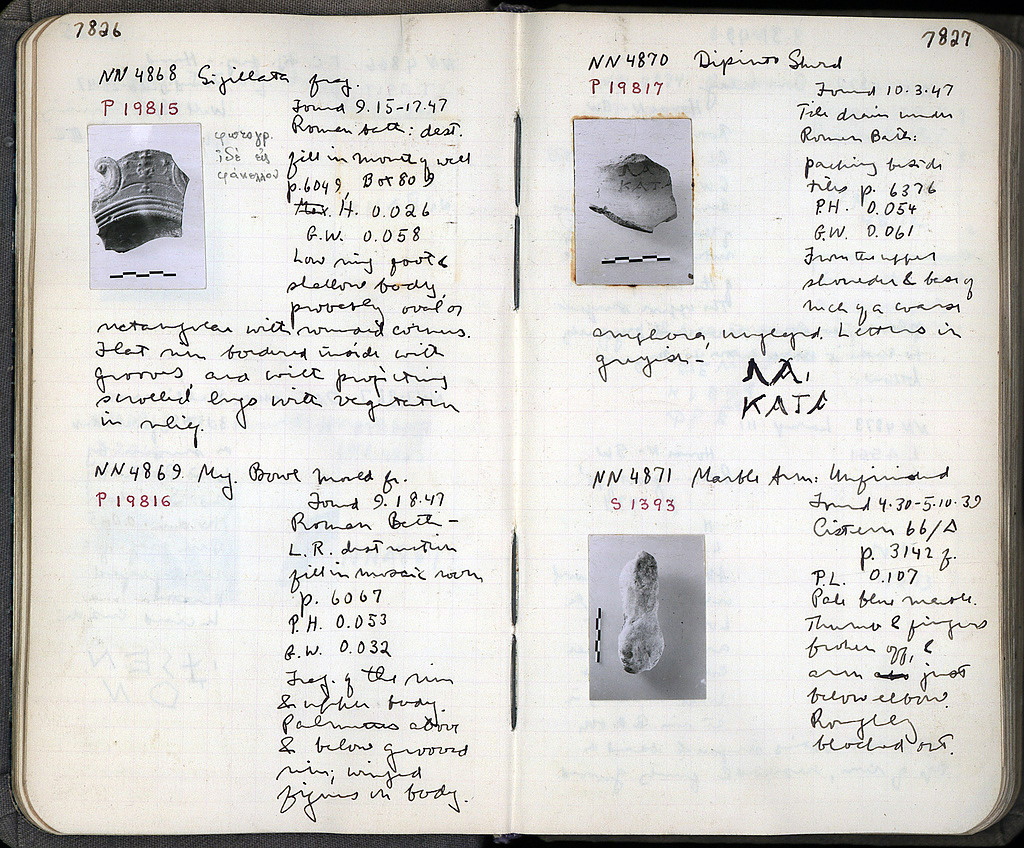 7826
NN 4868 Sigillata frag.
P 19815
Found 9.15-17.47
Roman bath: dest.
fill in mouth of well
p. 6049, Box 809
Max. H. 0.026
G.W. 0.058
Low ring foot &
shallow body,
probably oval or
rectangular with rounded corners.
Flat rim bordered inside with
grooves, and with projecting
scrolled lugs with vegetation
in relief.
φωτογρ.
ἰδὲ εἰς
φάκελλον
NN 4869. Meg. Bowl Mould fr.
P 19816
Found 9.18.47
Roman Bath -
L.R. destruction
fill in mosaic room
p. 6067
P.H. 0.053
G.W. 0.032
Frag. of the rim
& upper body.
Palmettes above
& below grooved
rim; winged
figures on body.
7827
NN 4870 Dipinto Sherd
P 19817
Found 10.3.47
Tile drain under
Roman Bath:
packing beside
tiles p. 6376
P.H. 0.054
G.W. 0.061
From the upper
shoulder & base of
neck of a coarse
amphora, unglazed. Letters in
greyish -
ΛΑ
ΚΑΤΑ
NN 4871 Marble Arm: Unfinished
S 1393
Found 4.30-5.10.39
Cistern 66/Δ
p. 3142 f.
P.L. 0.107
Pale blue marble.
Thumb & fingers
broken off, &
arm just
below elbow.
Roughly
blocked out.